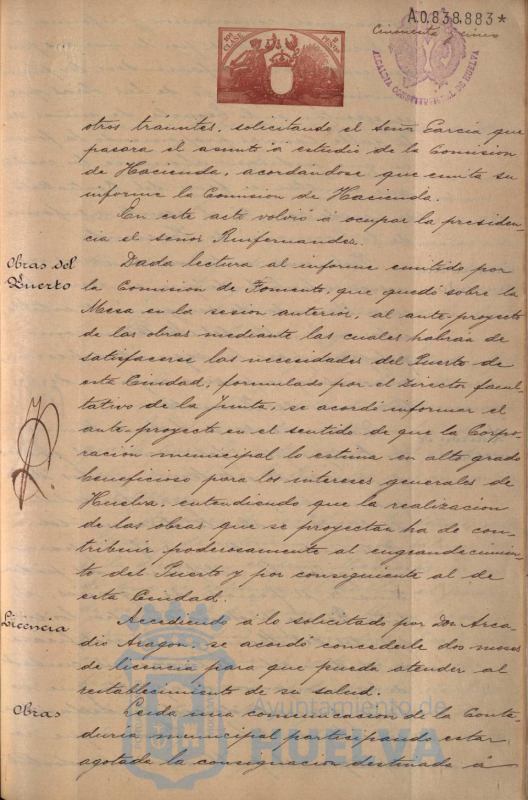 A.0.838.883*
Cincuenta y cinco
10ª CLASE
2 PESETAS
ALCALDIA CONSTITUCIONAL DE HUELVA
otros trámites, solicitando el señor García que
pasara el asunto á estudio de la Comision
de Hacienda, acordándose que emita su
informe la Comision de Hacienda.
En este acto volvió á ocupar la presiden-
cia el señor Ruifernandez.
Obras del
Puerto
Dada lectura al informe emitido por
la Comision de Fomento, que quedó sobre la
Mesa en la sesion anterior, al ante-proyecto
de las obras mediante las cuales habrán de
satisfacerse las necesidades del Puerto de
esta Ciudad, formulado por el Director facul-
tativo de la Junta, se acordó informar el
ante-proyecto en el sentido de que la Corpo-
ración municipal lo estima en alto grado
beneficioso para los intereses generales de
Huelva, entendiendo que la realizacion
de las obras que se proyectan ha de con-
tribuir poderosamente al engrandecimien-
to del Puerto y por consiguiente al de
esta Ciudad.
Licencia
Accediendo á lo solicitado por Don Arca-
dio Aragon, se acordó concederle dos meses
de licencia para que pueda atender al
restablecimiento de su salud.
Obras
Leida una comunicacion de la Conta-
duria municipal participando estar
agotada la consignacion destinada á
Ayuntamiento de
HUELVA